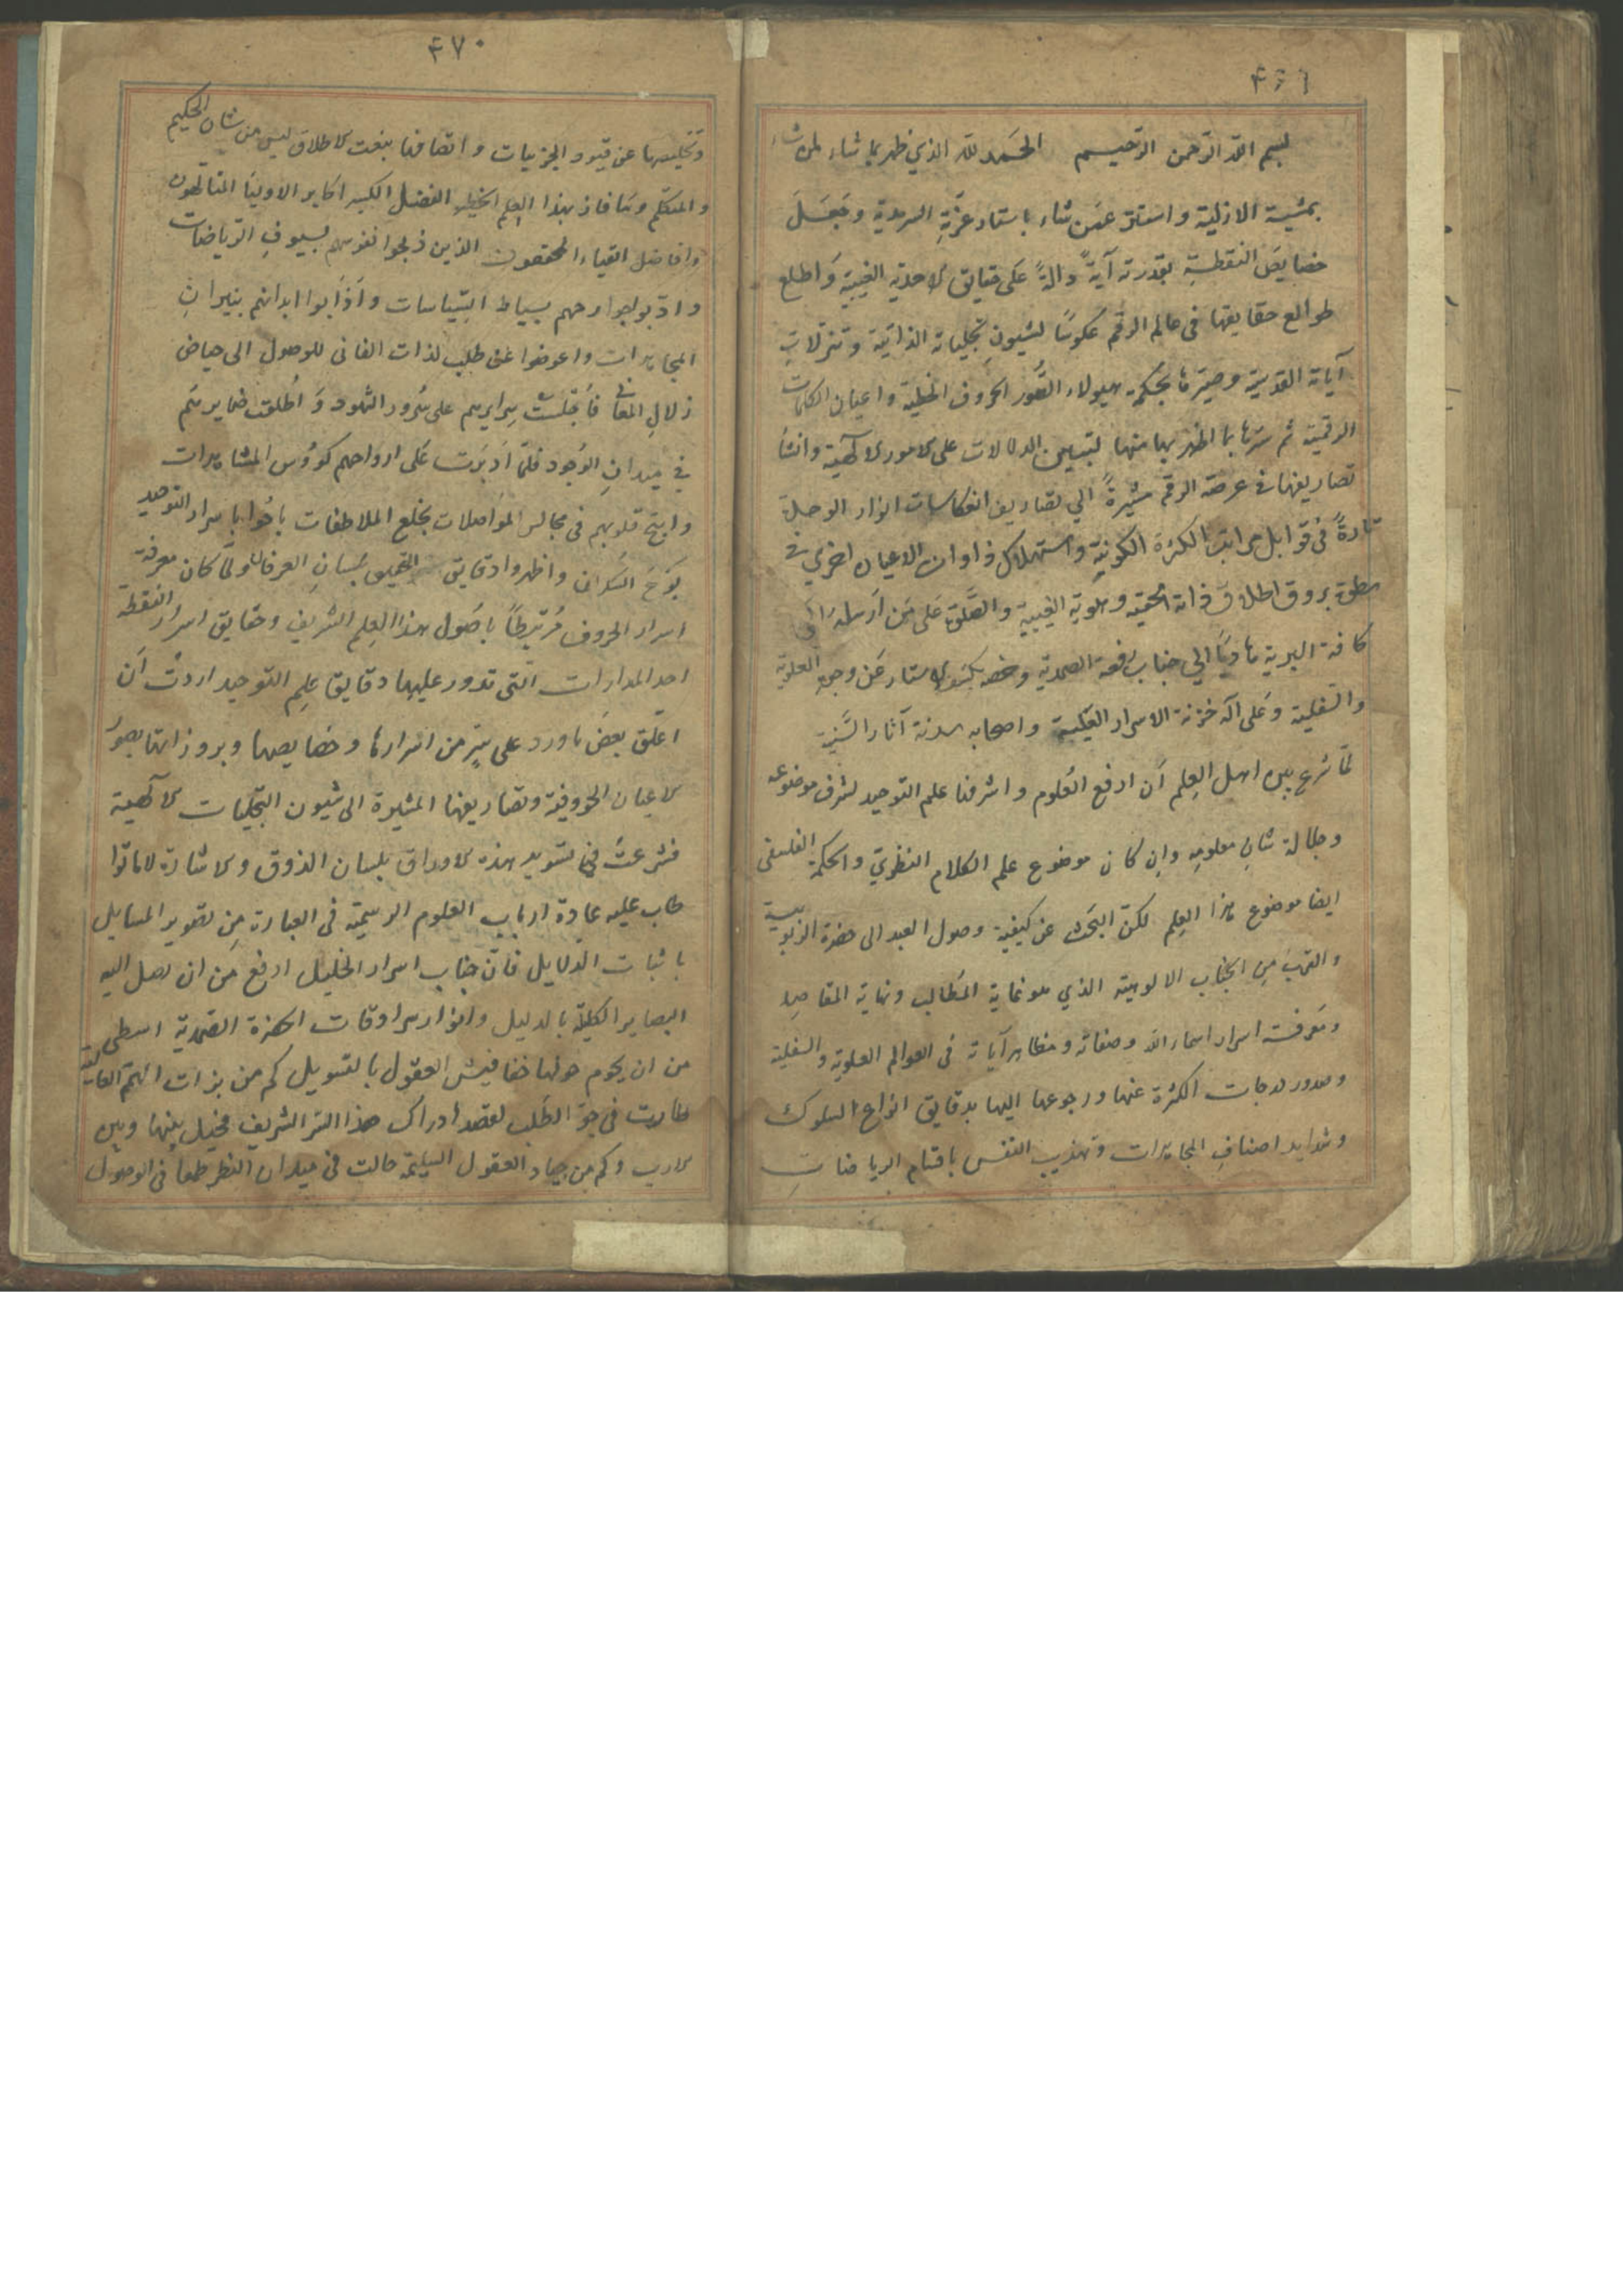 ٤٦٩
بسم الله الرحمن الرحيم الحمد لله الذي ظهر بما شاء لمن شاء
بمشيته الازلية واستتر عمن شاء باستار عزته السرمدية وجعل
خصايص النقطية بقدرته آيةً دالةً على حقايق الاحدية الغيبية واطلع
طوالع حقايقها فى عالم الرقم عكوسًا لشيون تجلياته الذاتية وتنزلاتِ
آياته القدسية وصيرها بحكمته هيولاء الصُّور الحروف الخطية واعيان الكلمات
الرقمية ثم سترها بما اظهر بها منها لتبيين الدلالات على الامور الآلهية وانشأ
تصاريفها فى عرصة الرقم مشيرةً الي تصاريف انعكاسات انوار الوحدة
تارةً فى قوابل مراتب الكثرة الكونية واستهلاك ذاوات الاعيان اخري فى
سطوة بروق اطلاق ذاته الحقية وهوية الغيبية والصلوة على من ارسله الى
كافة البرية هاديًا الي جناب رفعة الصمدية وخصه بكشف الاستار عن وجوه العلوية
والسفلية وعلى آله خزنة الاسرار العلية واصحابه سدنة آثار السَّنية
لما شرع بين اهل العلم أن ارفع العُلوم واشرفها علم التوحيد لشرف موضوعه
وجلالة شانِ معلومه وإن كان موضوع علم الكلام النظري والحكمة الفلسفى
ايضا موضوع هذا العِلم لكن البَحث عن كيفية وصول العبد الى حضرة الربوبية
والقرب من الجناب الالوهية الذي هو غاية المَطالب ونهاية المقاصِد
ومَعرفة اسرار اسماء الله وصفاته ومظاهر آياته فى العوالم العلوية والسفلية
وصدور درجات الكثرة عنها ورجوعها اليها بدقايق انواع السلوك
وشدايد اصنافِ المجاهدات وتهذيب النفس باقسام الرياضاتِ
٤٧٠
وتخليصها عن قيود الجزئيات واتصافها بنعت الاطلاق ليس من شان الحكيم
والمتكلم وما فاز بهذا العِلم الخطير الفضل الكبير اكابر الاولياء المتالهون
وافاضل اتقياء المحققون الذين ذبحوا نفوسهم بسيوفِ الرياضات
وادّبوا جوارحهم بسياط السِّياسات وأذابوا ابدانهم بنيرانِ
المجاهدات واعرضوا عن طلب لذات الفانى للوصول الى حياض
زلالِ المعانى فأجلست سِرايرهم على سُرور الشهود وأُطلقت ضمايرهم
في ميدانِ الوُجود فلما اُديرَت عَلى ارواحهم كؤوس المشاهدات
وابتهج قلوبهم فى مجالس المواصلات بخلع الملاطفات باحُوا باسرار التوحيد
بَوْحَ السَكران واظهروا دقايق التحقيق بلسانِ العرفان ولما كان معرفة
اسرار الحروف مُرتبطًا باصُول هذا العِلم الشريف وحقايق اسرار النقطة
احد المدارات التى تدور عليها دقايق علِم التوحيد اردتُ أن
اعلّق بعضَ ما ورد على سِرّى من اسرارها وخصايصها وبروزاتها بصور
الاعيان الحروفية وتصاريفها المشيرة الى شيون التجليات الآلهية
فشرعتُ فى تسويد هذه الاوراق بلسان الذوق والاشارة لا ما توا
طاب عليه عادة ارباب العلوم الرسمية فى العبارة من تصوير المسايل
باثبات الدلايل فان جناب اسرار الخليل ارفع من ان يصل اليه
البصاير الكليلة بالدليل وانوار سرادقات الحضرة الصمدية اسطى
من ان يحوم حولها خفافيش العقول بالتسويل كم من بزات الهمم العالية
طارت فى جوّ الطَلب لقصد ادراك هذا السّر الشريف فحيل بينها وبين
الارب وكم من جياد العقول السليمة جالت فى ميدان النظر طمعًا فى الوصول